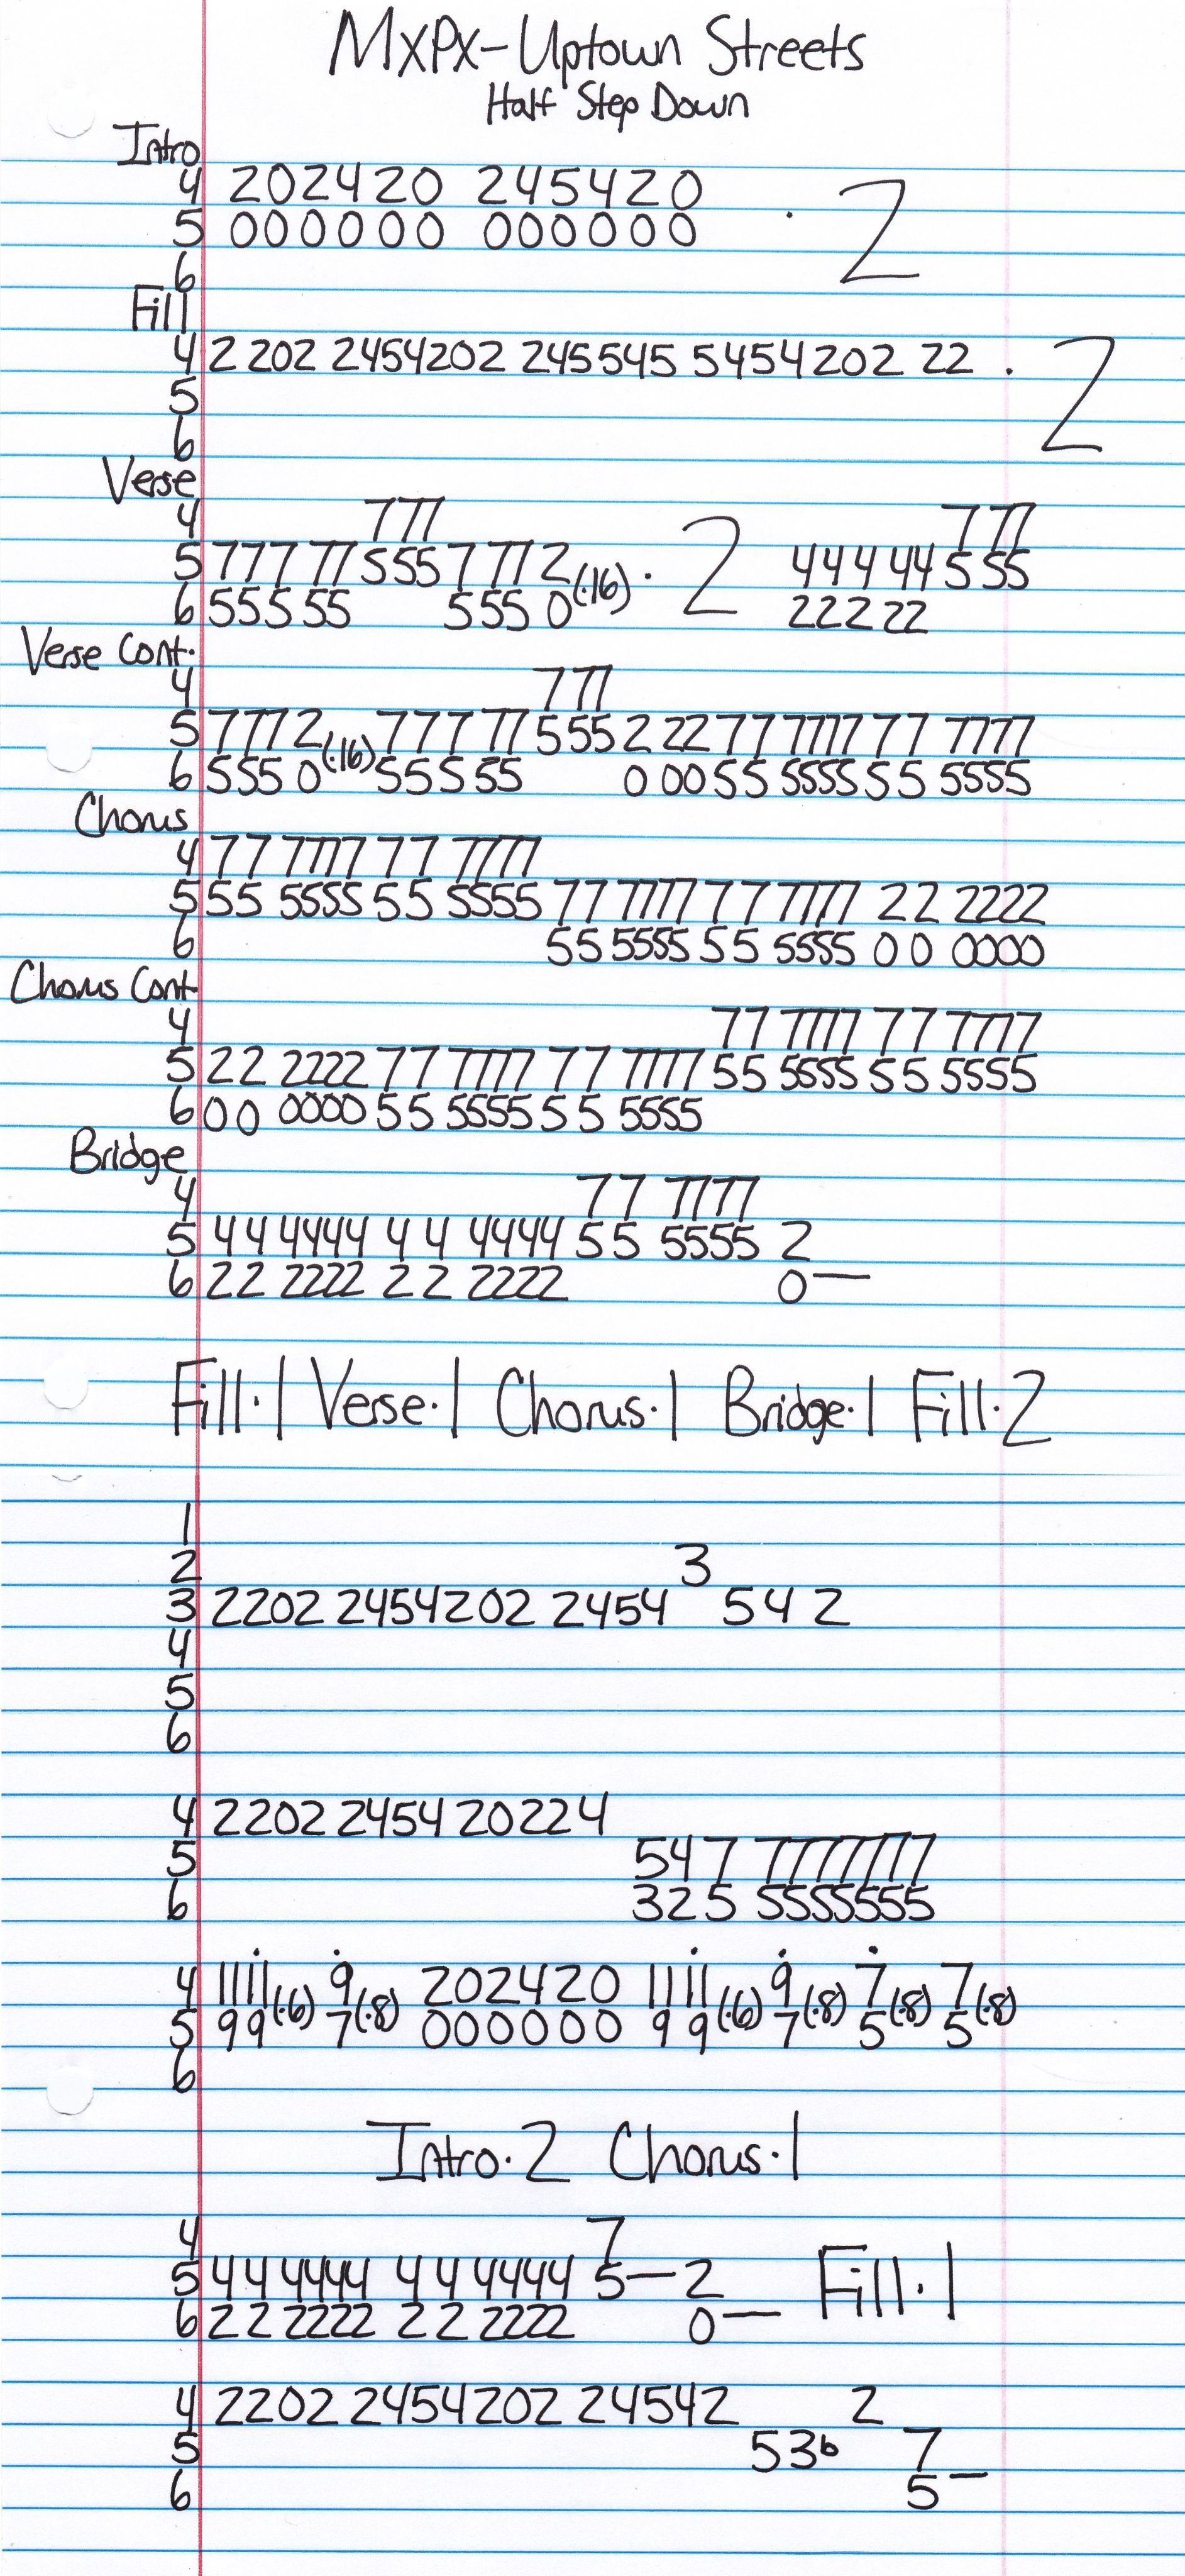 MXPX-Uptown Streets
Half Step Down
Intro
4 202420 245420 · 2
5 000000 000000
6
Fill
4 2 202 2454202 245545 5454202 22 · 2
5
6
Verse
4 777 777
5 777 77 555 7 77 2 (·16) · 2 444 44 5 55
6 555 55 555 0 222 22
Verse Cont.
4 777
5 777 2 (·16) 777 77 555 2 22 77 7777 77 7777
6 555 0 555 55 0 00 55 5555 55 5555
Chorus
4 77 7777 77 7777
5 55 5555 55 5555 77 7777 77 7777 22 2222
6 55 5555 55 5555 00 0000
Chorus Cont
4 77 7777 77 7777
5 22 2222 77 7777 77 7777 55 5555 55 5555
6 00 0000 55 5555 55 5555
Bridge
4 77 7777
5 44 4444 44 4444 55 5555 2
6 22 2222 22 2222 0—
Fill·1 Verse·1 Chorus·1 Bridge·1 Fill·2
1
2 3
3 2202 2454202 2454 542
4
5
6
4 2202 2454 20224
5 547 7777777
6 325 5555555
4 11 11 (·6) 9 (·8) 202420 11 11 (·6) 9 (·8) 7 (·8) 7 (·8)
5 9 9 7 000000 9 9 7 5 5
6
Intro·2 Chorus·1
4 7
5 44 4444 44 4444 5— 2 Fill·1
6 22 2222 22 2222 0—
4 2202 2454202 24542 2
5 53b 7
6 5—